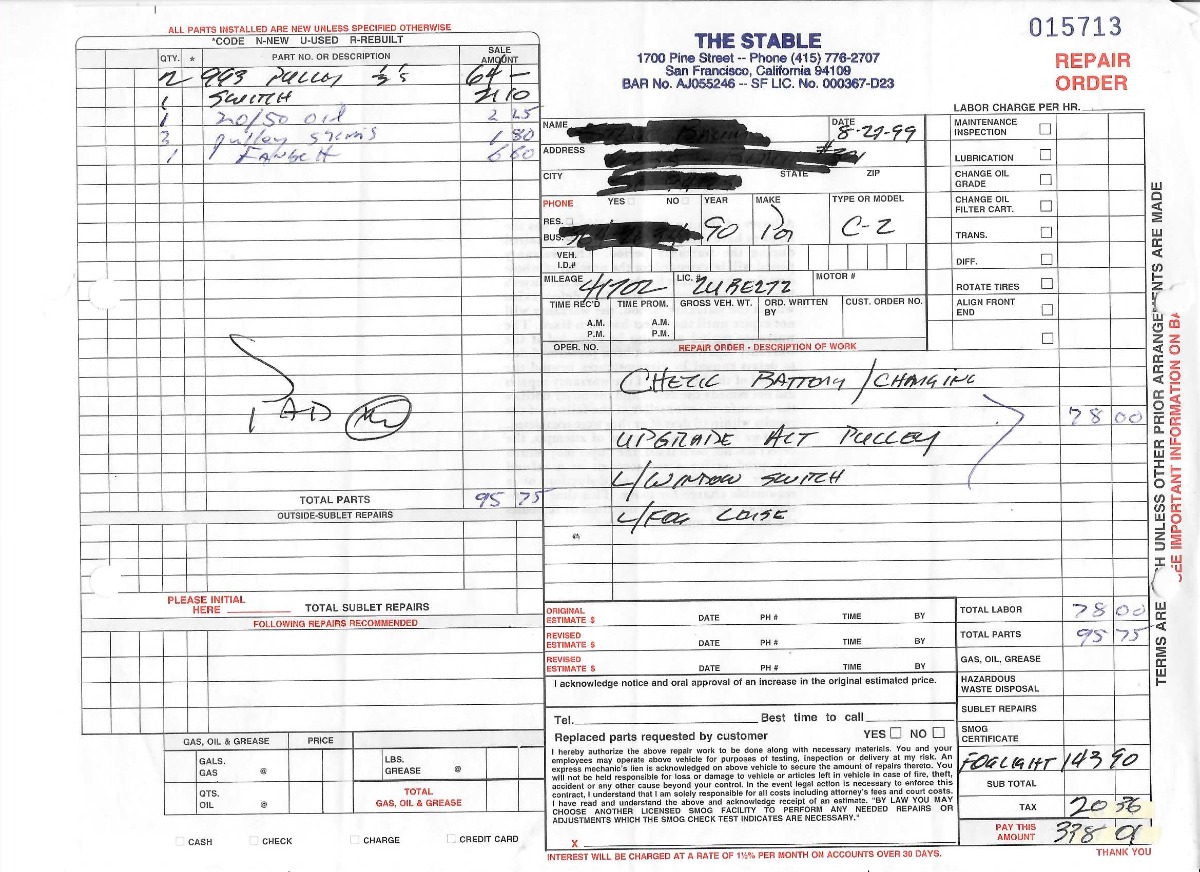 ALL PARTS INSTALLED ARE NEW UNLESS SPECIFIED OTHERWISE
*CODE N-NEW U-USED R-REBUILT
QTY. * PART NO. OR DESCRIPTION SALE AMOUNT
2 993 PULLEY ½'s 64 —
1 SWITCH 21 10
1 20/50 Oil 2 25
3 pulley shims 1 80
1 6 60
PAID
TOTAL PARTS 95 75
OUTSIDE-SUBLET REPAIRS
PLEASE INITIAL
HERE TOTAL SUBLET REPAIRS
FOLLOWING REPAIRS RECOMMENDED
GAS, OIL & GREASE PRICE
GALS. GAS @ LBS. GREASE @
QTS. OIL @ TOTAL GAS, OIL & GREASE
CASH CHECK CHARGE CREDIT CARD
015713
THE STABLE
1700 Pine Street -- Phone (415) 776-2707
San Francisco, California 94109
BAR No. AJ055246 -- SF LIC. No. 000367-D23
REPAIR
ORDER
LABOR CHARGE PER HR.
NAME DATE 8-27-99
ADDRESS
CITY STATE ZIP
PHONE YES NO YEAR MAKE TYPE OR MODEL
RES.
BUS. 90 Por C-2
VEH. I.D.#
MILEAGE 41702 LIC. # 2UBE272 MOTOR #
TIME REC'D TIME PROM. GROSS VEH. WT. ORD. WRITTEN BY CUST. ORDER NO.
A.M. A.M.
P.M. P.M.
OPER. NO. REPAIR ORDER - DESCRIPTION OF WORK
MAINTENANCE INSPECTION
LUBRICATION
CHANGE OIL GRADE
CHANGE OIL FILTER CART.
TRANS.
DIFF.
ROTATE TIRES
ALIGN FRONT END
CHECK BATTERY / CHARGING
78 00
UPGRADE ALT PULLEY
L/WINDOW SWITCH
L/FOG LENSE
ORIGINAL ESTIMATE $ DATE PH # TIME BY
REVISED ESTIMATE $ DATE PH # TIME BY
REVISED ESTIMATE $ DATE PH # TIME BY
I acknowledge notice and oral approval of an increase in the original estimated price.
Tel. Best time to call
Replaced parts requested by customer YES NO
I hereby authorize the above repair work to be done along with necessary materials. You and your
employees may operate above vehicle for purposes of testing, inspection or delivery at my risk. An
express mechanic's lien is acknowledged on above vehicle to secure the amount of repairs thereto. You
will not be held responsible for loss or damage to vehicle or articles left in vehicle in case of fire, theft,
accident or any other cause beyond your control. In the event legal action is necessary to enforce this
contract, I understand that I am solely responsible for all costs including attorney's fees and court costs.
I have read and understand the above and acknowledge receipt of an estimate. "BY LAW YOU MAY
CHOOSE ANOTHER LICENSED SMOG FACILITY TO PERFORM ANY NEEDED REPAIRS OR
ADJUSTMENTS WHICH THE SMOG CHECK TEST INDICATES ARE NECESSARY."
X
INTEREST WILL BE CHARGED AT A RATE OF 1½% PER MONTH ON ACCOUNTS OVER 30 DAYS.
TOTAL LABOR 78 00
TOTAL PARTS 95 75
GAS, OIL, GREASE
HAZARDOUS WASTE DISPOSAL
SUBLET REPAIRS
SMOG CERTIFICATE
FOGLIGHT 143 90
SUB TOTAL
TAX 20 36
PAY THIS AMOUNT 338 01
THANK YOU
TERMS ARE H UNLESS OTHER PRIOR ARRANGEMENTS ARE MADE
SEE IMPORTANT INFORMATION ON BA